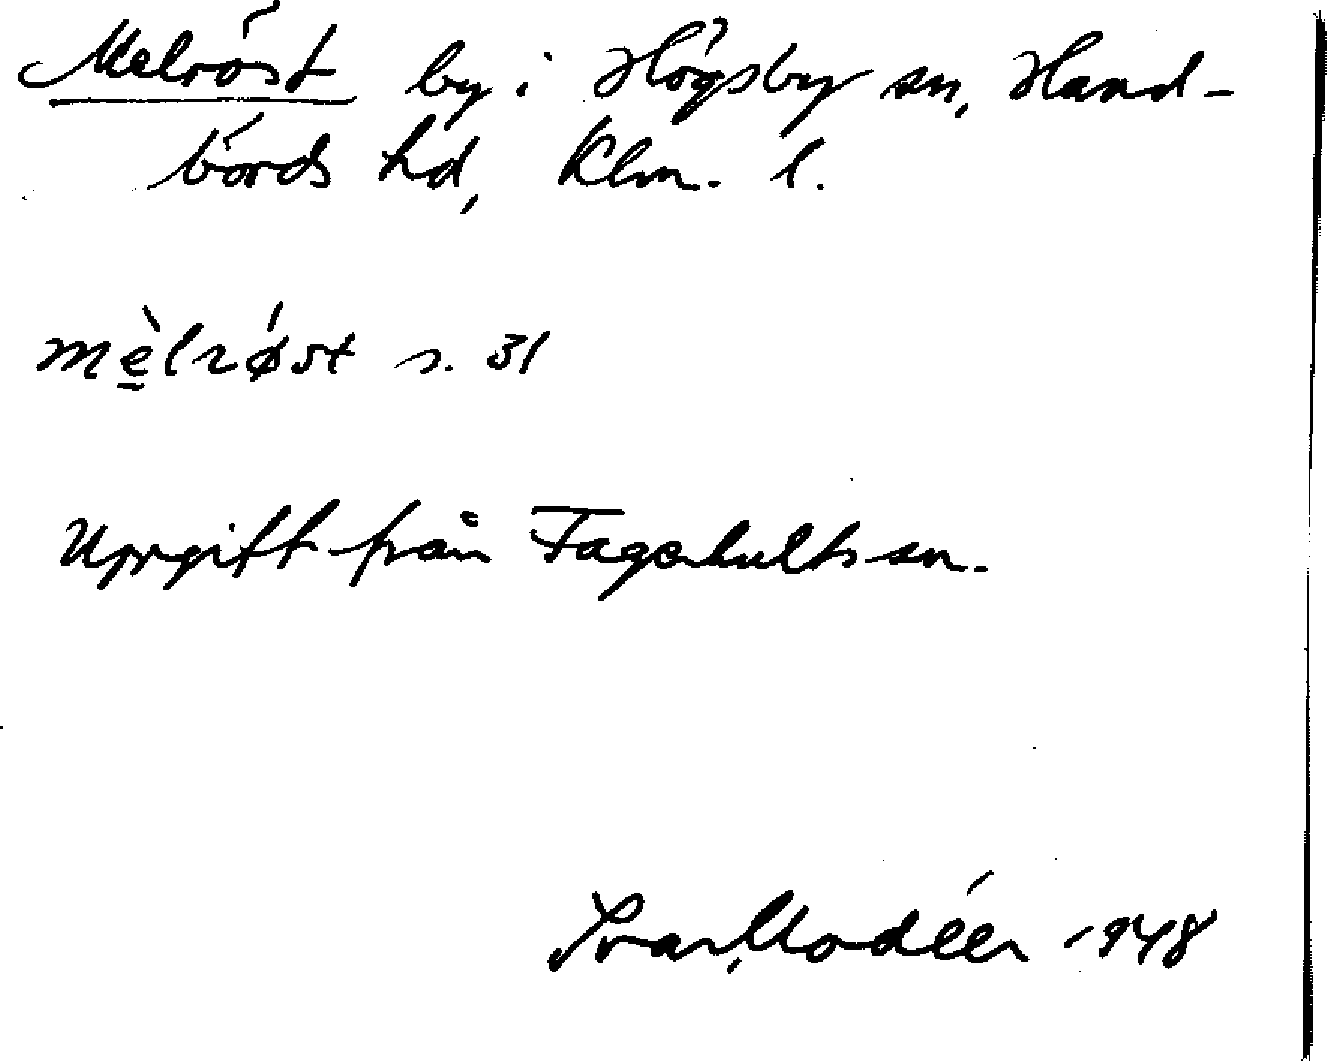 Melröst by i Högsby sn, Hand-
börds hd, Klm. l.
mèlrøst s. 31
Uppgift från Fagerhults sn.
Ivar Modéer 1948